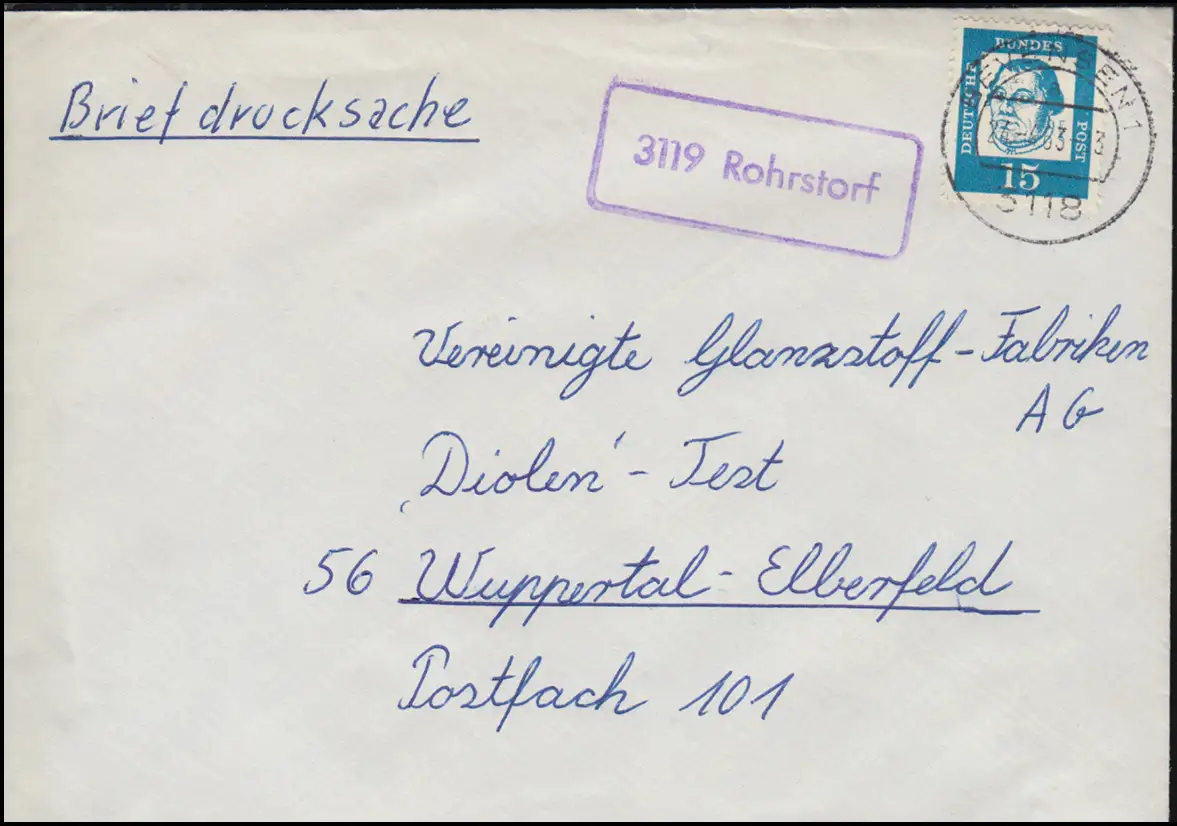 Brief drucksache
3119 Rohrstorf
DEUTSCHE
BUNDES
POST
15
BEVENSEN 1
3118
Vereinigte Glanzstoff-Fabriken
AG
‚Diolen'-Test
56 Wuppertal-Elberfeld
Postfach 101